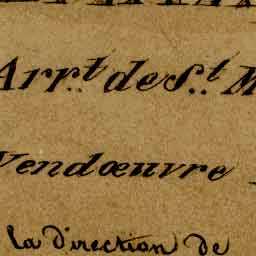 Arr.t de S.t M
Vendœuvre
la direction de